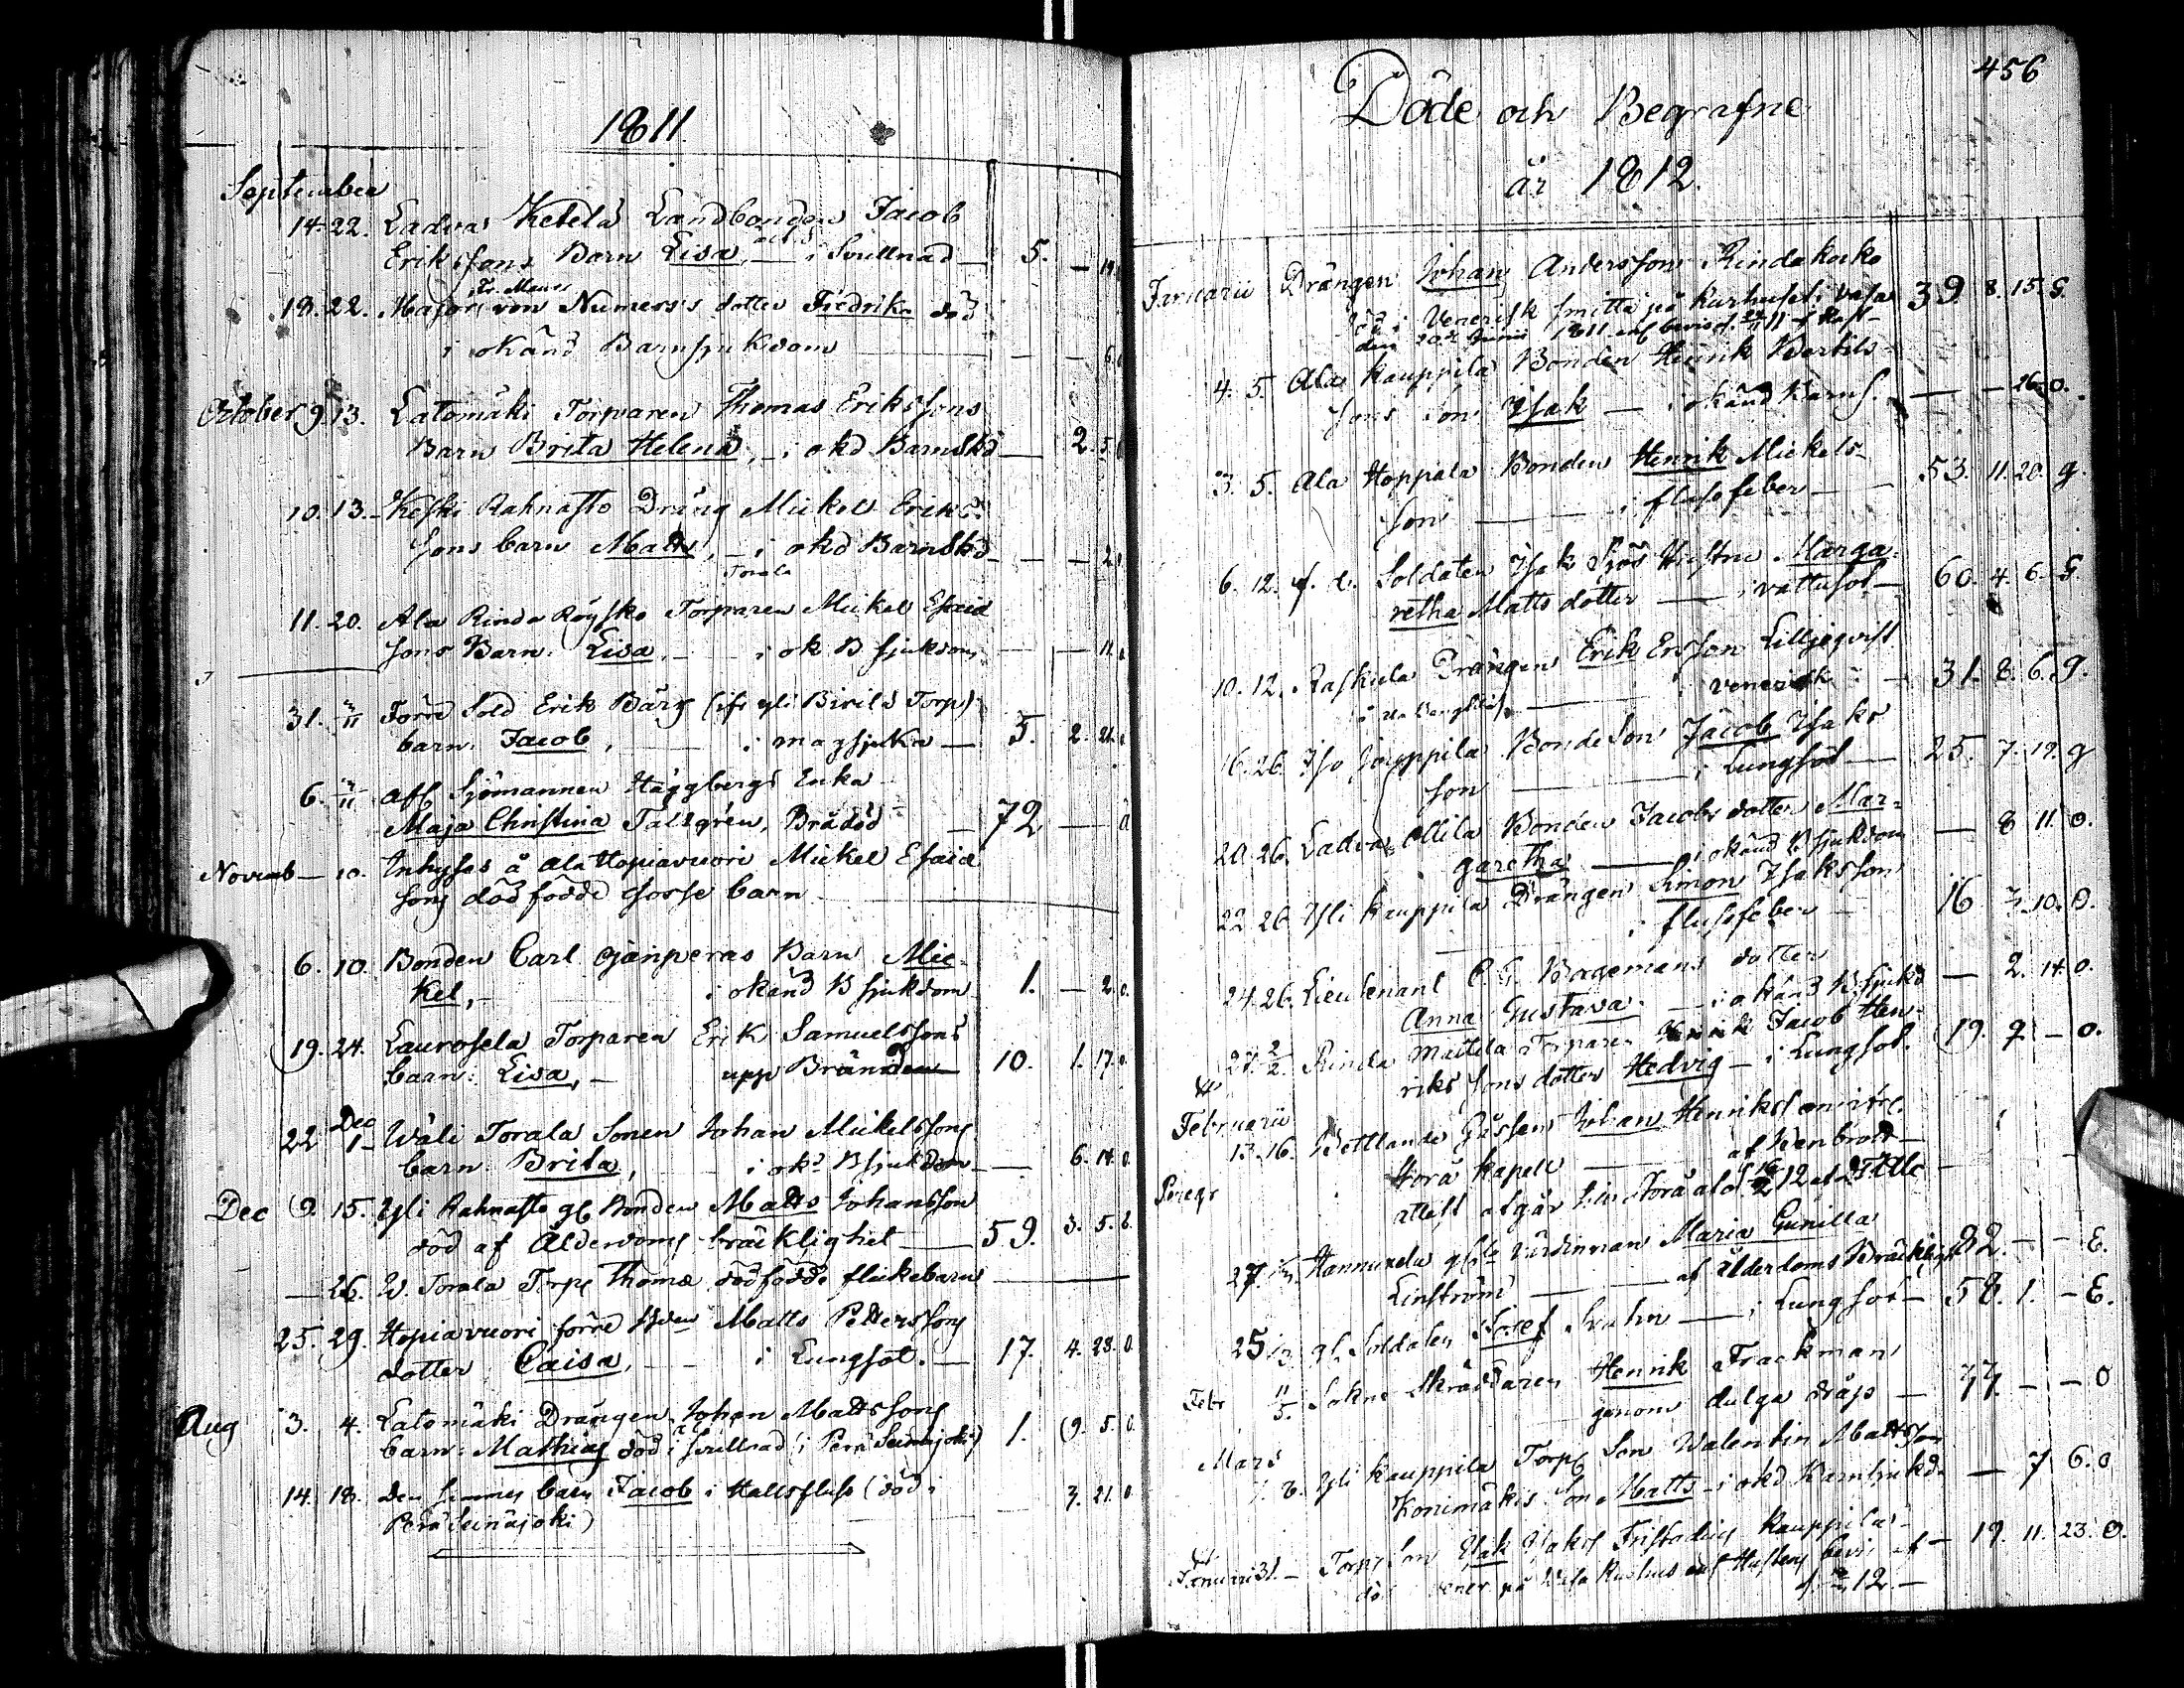 1811.
September
14. 22. Ladva Ketela Landbonden Jacob
Erikssons Barn Lisa, i Svullnad 5. —
18. 22. Major von Numers's dotter Fredrika död
i okänd Barnsjukdom — — 6.
October 9. 13. Latomäki Torparen Thomas Erikssons
Barn Brita Helena, i okd Barnskd — 2. 5
10. 13. Keski Rahnasto Dräng Mickel Eriks
sons barn Matts, — i okd Barnskd — — 2.
Torala
11. 20. Ala Rinda Röysko Torparen Mickel Esaid
sons Barn Lisa, — i ok B sjukdom — — 11.
31. Förre Sold Erik Bärg (ifr yli Birilä Torp)
barn Jacob, — i magsjuka — 5. 2. 21.
6. afl Sjömannen Häggbergs Enka
Maja Christina Talzgrén, Brådöd — 72. —
Novemb — 10. Inhyses å Ala Hopiavuori Mickel Esaid
sons dödfödde gosse barn
6. 10. Bonden Carl Barn Mic-
kel, — i okänd B sjukdom 1. — 2. 0.
19. 24. Laurosela Torparen Erik Samuelssons
barn: Lisa, — upp Bränden 10. 1. 17. 0
22 Dec 1 — Wäli Torala Sonen Johan Mickelssons
barn Brita, — i okd B sjukdom — 6. 14. 0
Dec 9. 15. Yli Rahnasto gl Bonden Matts Johansson
död af Ålderdoms bräcklighet — 59. 3. 5. 6.
— 26. W. Torala Torp Thomæ dödfödde flickebarn —
25. 29. Hopiavuori förre Matts Petterssons
dotter Caisa, — i Lungsot. — 17. 4. 28. 0
Aug 3. 4. Latomäki Drängen Johan Mattssons
barn: Mathias död i Svullnad (i Perä Seinäjoki) 1. 9. 5. 0
14. 18. Den barn Jacob i Hallsfluss (död i
Perä Seinäjoki) 3. 21. 0
456
Döde och Begrafne
år 1812.
Januarii Drängen Johan Andersson Rindakoko
död i Venerisk smitta på Kurhuset i Vasa 39. 8. 15. G.
den 20de Junii 1811 enl bevis
4. 5. Ala Kauppila Bonden Henrik Bertils-
sons son Isak — i okänd Barns. — — 26. 0.
3. 5. Ala Hoppala Bonden Henrik Mickels-
son — i flussfeber — 53. 11. 20. g.
6. 12. f. d. Soldaten Isak Sjös Hustru Marga-
retha Matts dotter — i vattusot — 60. 4. 6. G.
10. 12. Raskula Drängen Erik Ersson Lilljeqvist
— i venerisk — 31. 8. 6. g.
16. 26. Iso Jouppila Bonde Son Jacob Isaks
son — i Lungsot — 25. 7. 19. g
20. 26. Ladva Ollila Bonden Jacobs dotter Mar-
garetha — i okänd B sjukdom — 8 11. 0.
22 26 Yli Kauppila Drängen Simon Isaksson
— i flussfeber 16 7. 10. 0.
24. 26. Lieutenant C. G. Bagemans dotter
Anna Gustava. — i okänd B. sjukd — 2. 14. 0.
27. 2/2 Rinda Mattila Torparen Jacob Hen-
riks sons dotter Hedvig — i Lungsot. 19. 9 — 0.
Februarii
13. 16. Wettlande Gåssen Johan Henrikson
Storå Kapell — af benbrott —
Peregr attest afgår till Storå
27. 1/3 Hannuxela Värdinnan Maria Gunilla
Linström — af Ålderdoms Bräcklighet 82. — — E.
25 1/3 gl. Soldaten Josef — i Lungsot — 58. 1. — E.
Febr 11/5. Sokne Skräddaren Henrik Frackman
genom dulga dråp — 77. — — 0
Mars
7. 8. Yli Kauppila Torp Son Valentin Mattsson
Konimäkis Son Matts — i okd Barnsjukd. — 7 6. 0
Januari 31. — Torp Son Isak Isaks Tristadius Kauppila
död vener på Vasa Kurhus enl bevis 19. 11. 23. 0.
12. —